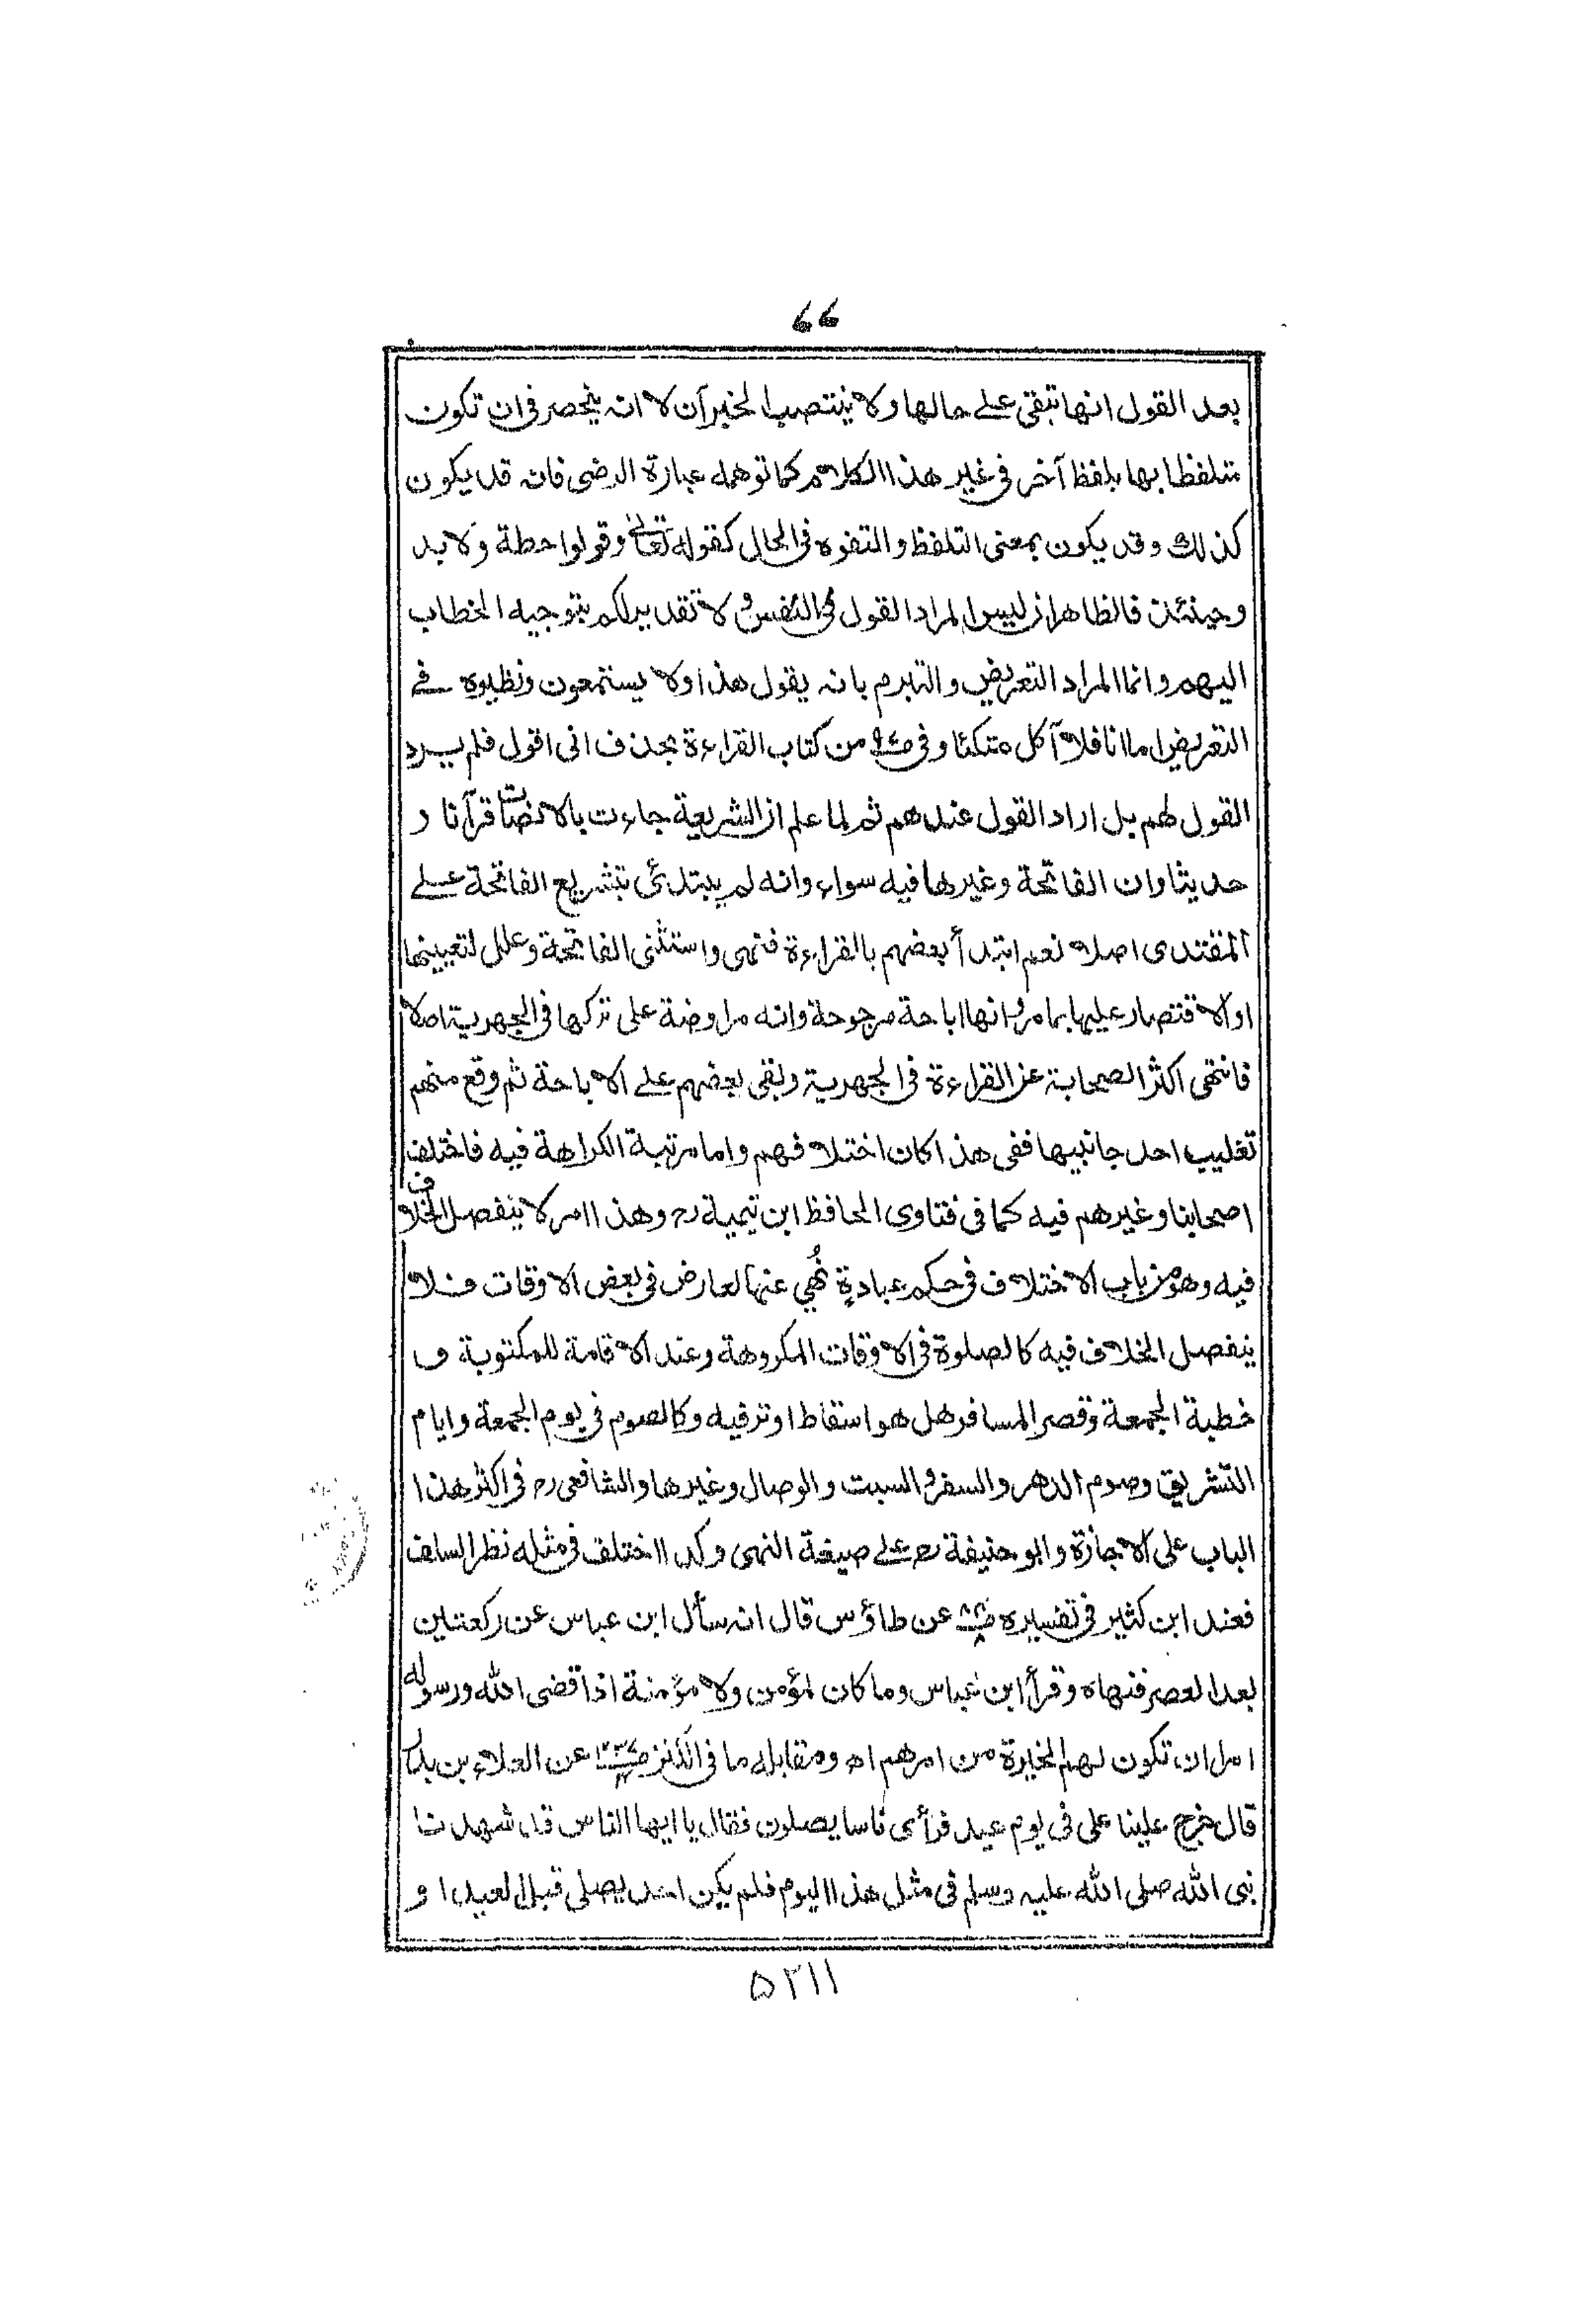 ٦٦
بعد القول انها تبقى على حالها ولا ينتصب الخبران لا انه ينحصر في ان تكون
متلفظا بها بلفظ آخر في غير هذا الكلام كما توهمه عبارة الرضى فانه قد يكون
كذلك وقد يكون بمعنى التلفظ والتفوه في الحال كقوله تعالى وقولوا حطة ولا بد
وحينئذ فالظاهر ان ليس المراد القول في النفس و لا تقديرلكم بتوجيه الخطاب
اليهم وانما المراد التعريض والتبرم بانه يقول هذا ولا يستمعون ونظيره في
التعريض اما انا فلا آكل متكئا وفى من كتاب القراءة بحذف انى اقول فلم يرد
القول لهم بل اراد القول عندهم ثم لما علم ان الشريعة جاءت بالانصات قرآنا و
حديثا وان الفاتحة وغيرها فيه سواء وانه لم يبتدئ بتشريع الفاتحة على
المقتدى اصلا نعم ابتدأ بعضهم بالقراءة فنهى واستثنى الفاتحة وعلل لتعيينها
او الاقتصار عليها بما مر وانها اباحة مرجوحة وانه مراوضة على تركها في الجهرية اصلا
فانتهى اكثر الصحابة عن القراءة في الجهرية وبقى بعضهم على الاباحة ثم وقع منهم
تغليب احد جانبيها ففى هذا كان اختلافهم واما مرتبة الكراهة فيه فاختلف
اصحابنا وغيرهم فيه كما في فتاوى الحافظ ابن تيمية رح وهذا امر لا ينفصل الخلاف
فيه وهو من باب الاختلاف في حكم عبادةٍ نُهي عنها لعارض في بعض الاوقات فلا
ينفصل الخلاف فيه كالصلوة في الاوقات المكروهة وعند الاقامة للمكتوبة و
خطبة الجمعة وقصر المسافر هل هو اسقاط او ترفيه وكالصوم في يوم الجمعة وايام
التشريق وصوم الدهر والسفر والسبت والوصال وغيرها والشافعى رح في اكثر هذا
الباب على الاجازة وابو حنيفة رح على صيغة النهى وكذا اختلف في مثله نظر السلف
فعند ابن كثير في تفسيره عن طاؤس قال انه سأل ابن عباس عن ركعتين
بعد العصر فنهاه وقرأ ابن عباس وما كان لمؤمن ولا مؤمنة اذا قضى الله ورسوله
امرا ان تكون لهم الخيرة من امرهم اه ومقابله ما في الكنز عن العلاء بن بدر
قال خرج علينا على في يوم عيد فرأى ناسا يصلون فقال يا ايها الناس قد شهدنا
نبى الله صلى الله عليه وسلم في مثل هذا اليوم فلم يكن احد يصلى قبل العيد او
٥٢١١